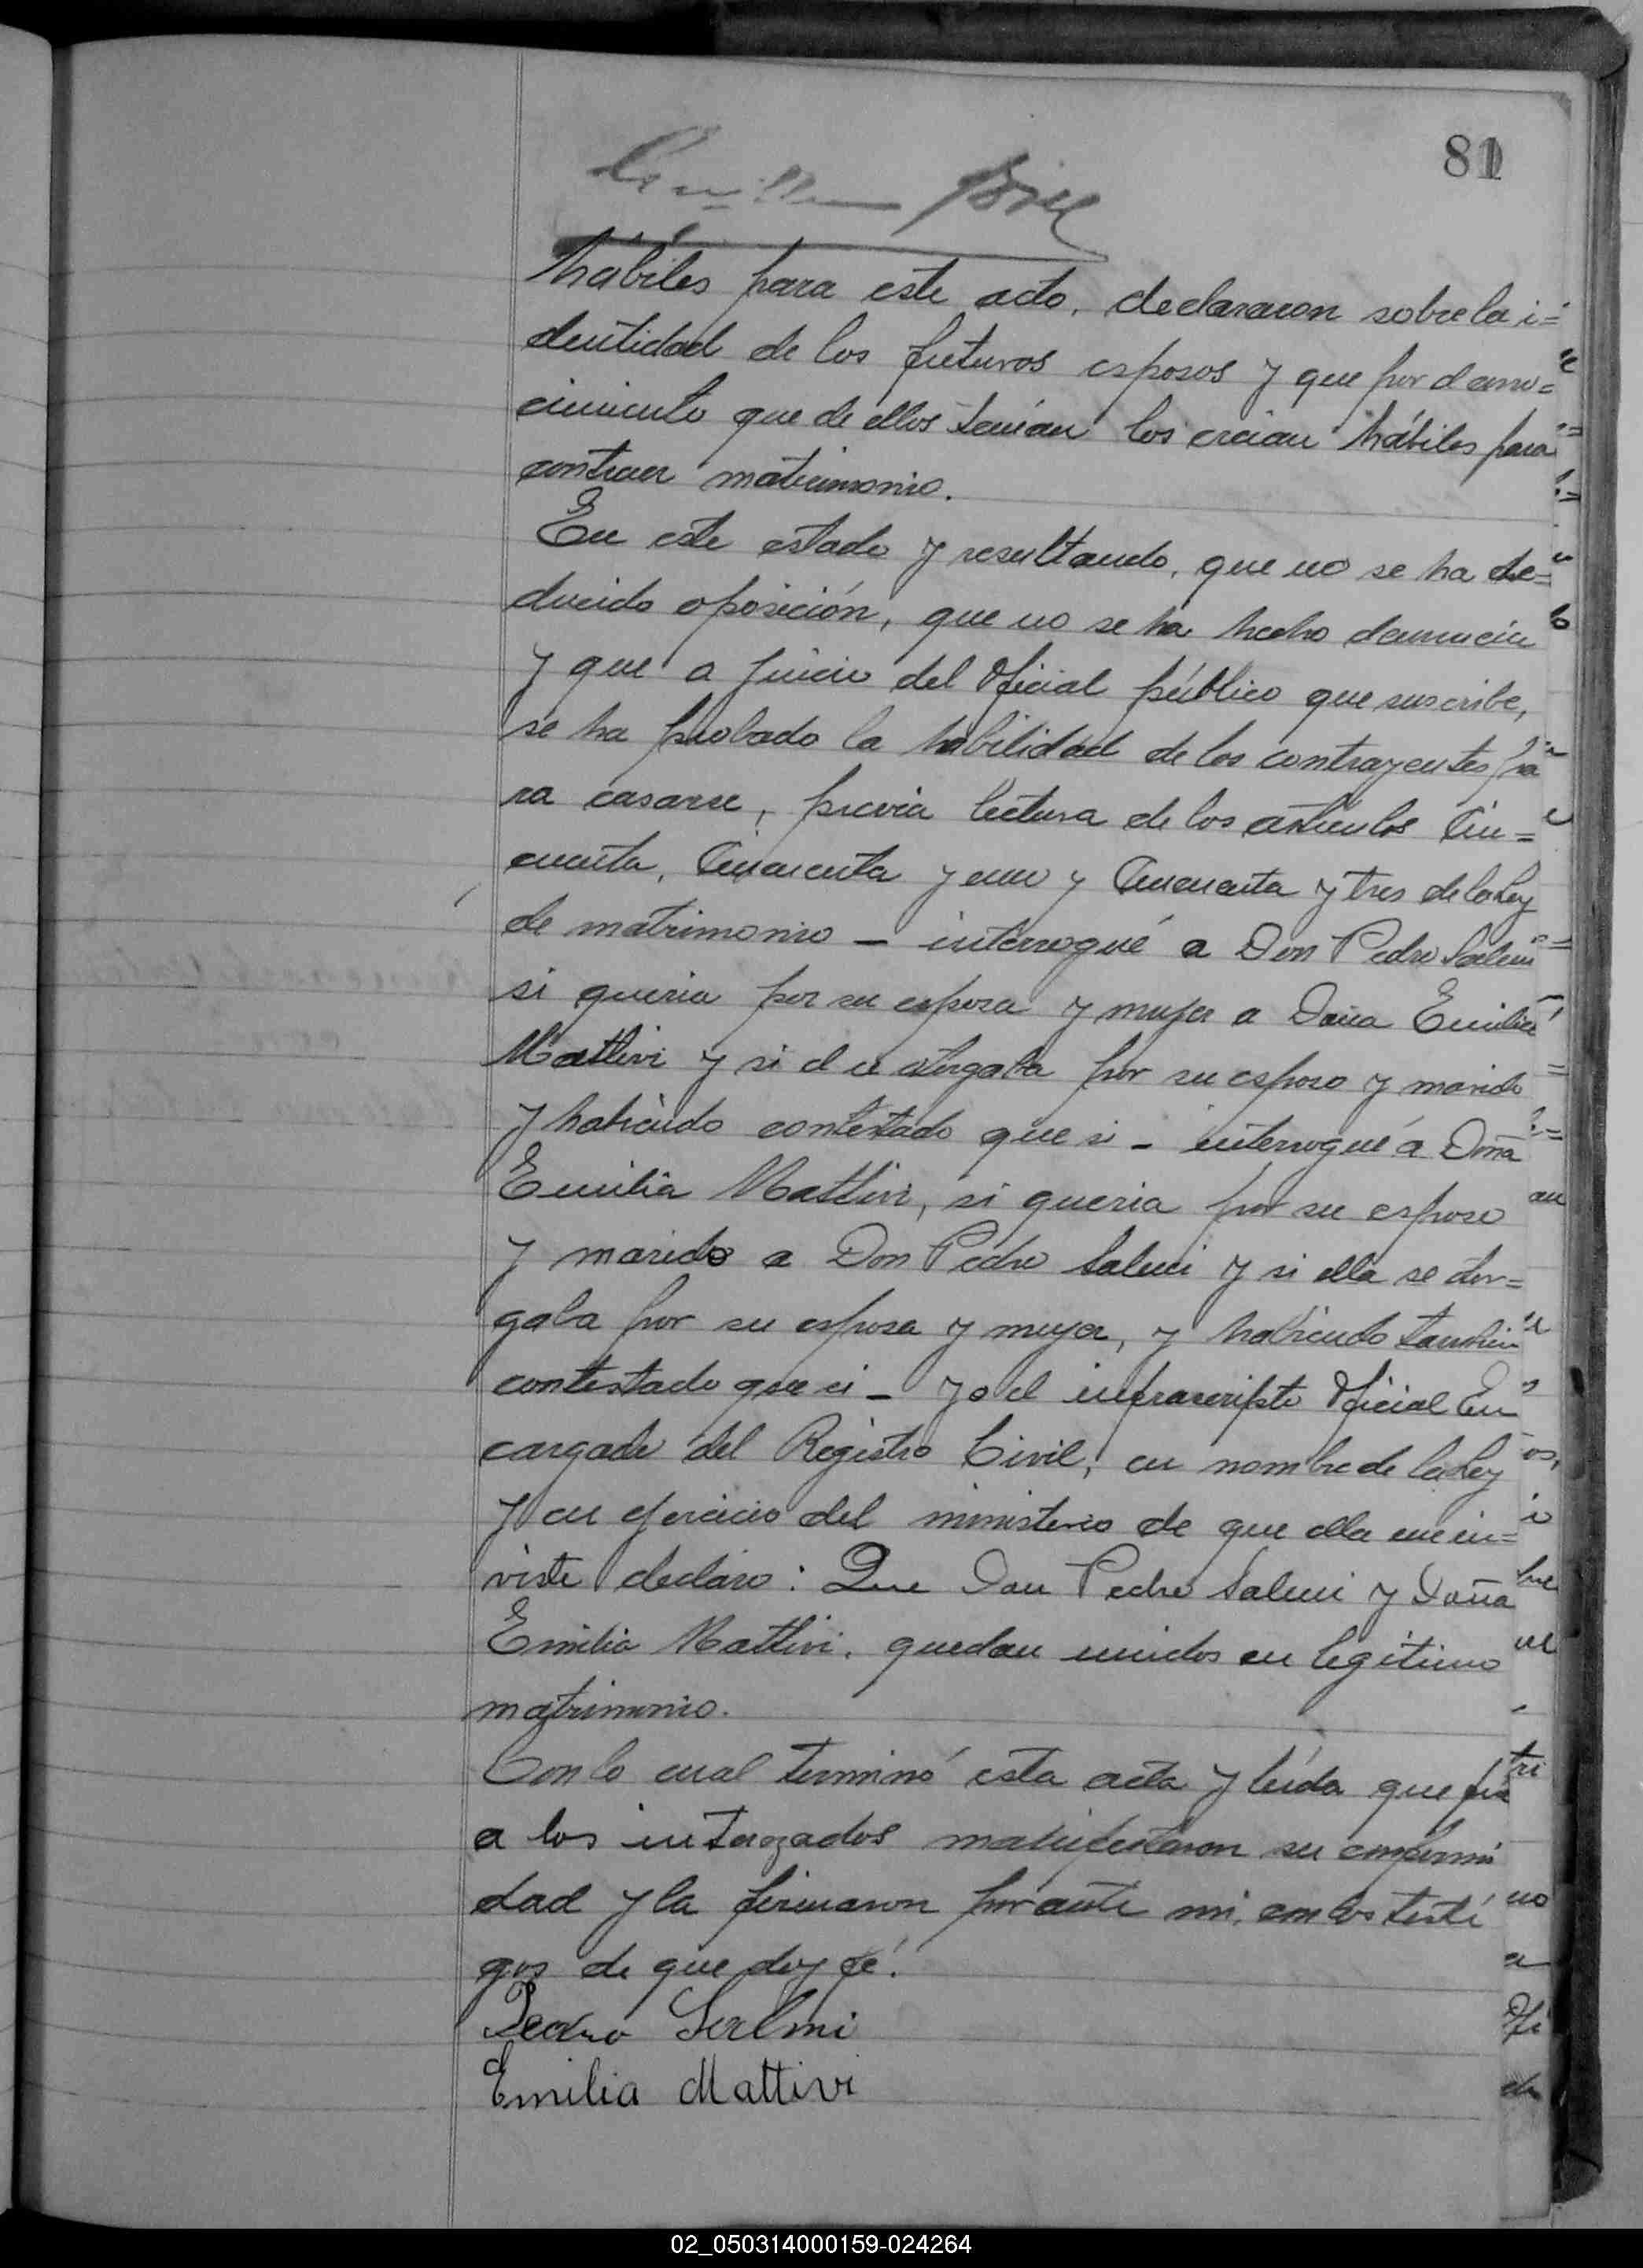 81
hábiles para este acto, declararon sobre la i=
dentidad de los futuros esposos y que por el cono=
cimiento que de ellos tenían los creían hábiles para
contraer matrimonio.
En este estado y resultando, que no se ha de=
ducido oposición, que no se ha hecho denuncia
y que a juicio del Oficial público que suscribe,
se ha probado la habilidad de los contrayentes pa
ra casarse, previa lectura de los artículos Cin=
cuenta, Cincuenta y uno y Cincuenta y tres de la Ley
de matrimonio – interrogué a Don Pedro Salmi
si queria por su esposa y mujer a Doña Emilia
Mattivi y si el se otorgaba por su esposo y marido
y habiendo contestado que si – interrogué a Doña
Emilia Mattivi, si queria por su esposo
y marido a Don Pedro Salmi y si ella se otor=
gaba por su esposa y mujer, y habiendo tambien
contestado que si – yo el infrascripto Oficial En
cargado del Registro Civil, en nombre de la Ley
y en ejercicio del ministerio de que ella me in=
viste declaro: Que Don Pedro Salmi y Doña
Emilia Mattivi, quedan unidos en legítimo
matrimonio.
Con lo cual terminó esta acta y leída que fué
a los interezados manifestaron su conformi
dad y la firmaron por ante mi, con los testi
gos de que doy fé.
Pedro Salmi
Emilia Mattivi
02_050314000159-024264